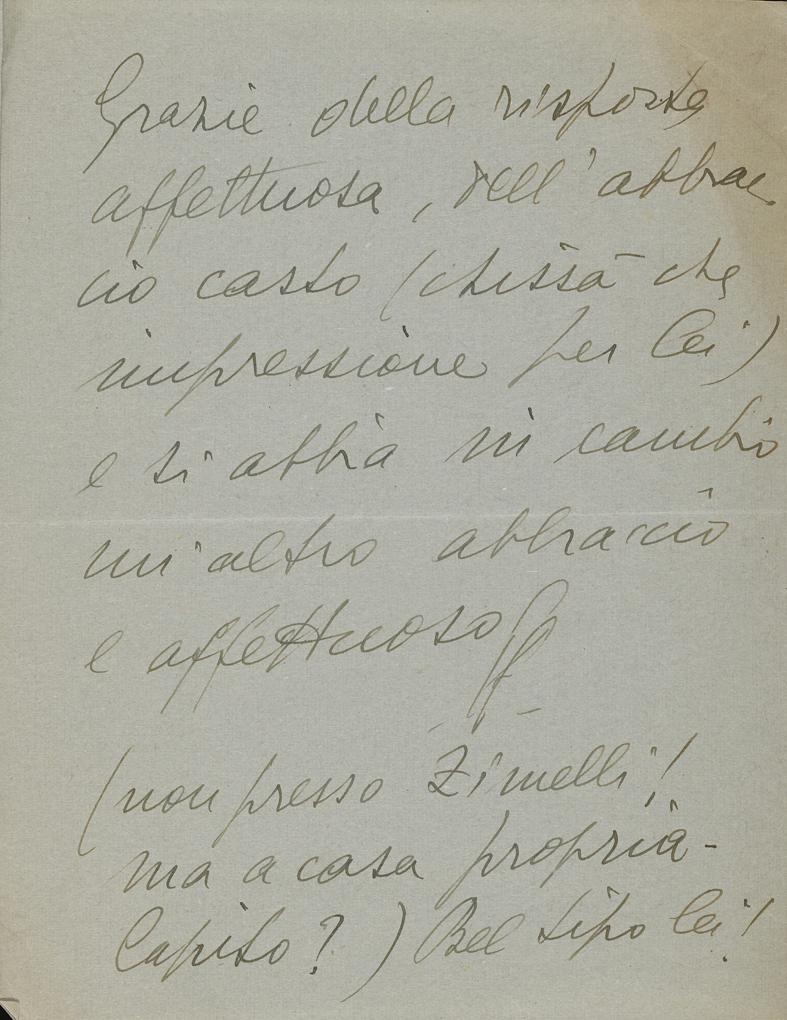 Grazie della risposta
affettuosa, dell'abbrac
cio casto (chissà che
impressione per lei)
e si abbia in cambio
un altro abbraccio
e affettuoso
(non presso Zimelli!
ma a casa propria -
Capito?) Bel tipo lei!